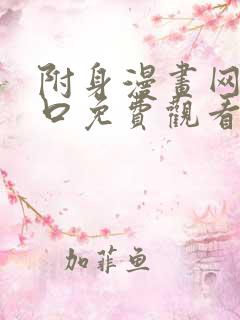 附身漫畫网
口免費觀看
加菲鱼